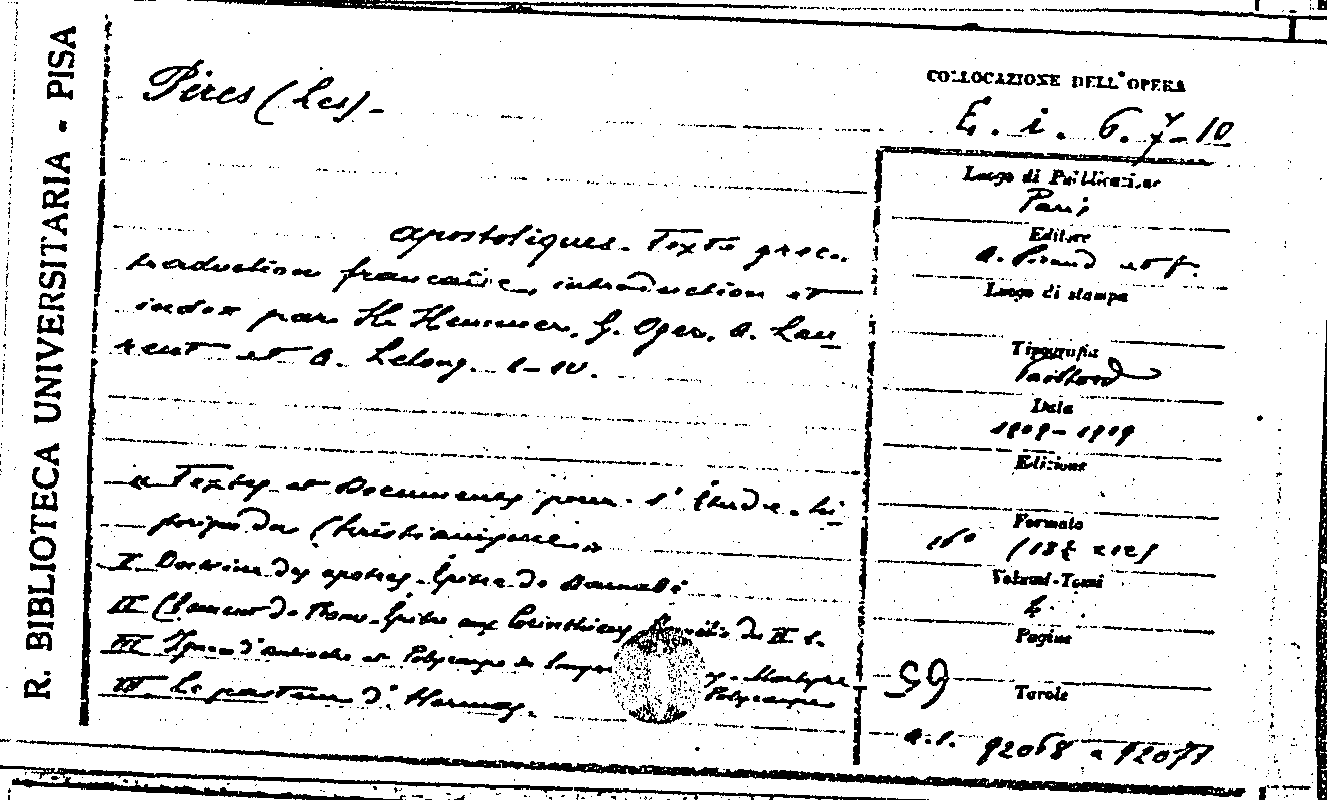 R. BIBLIOTECA UNIVERSITARIA - PISA
Pères (Les) -
COLLOCAZIONE DELL'OPERA
E. i. 6. 7-10
apostoliques. Texte grec.
traduction française, introduction et
index par H. Hemmer, G. Oger, A. Lau
rent et A. Lelong. I-IV.
« Textes et Documents pour l'Étude hi
storique du Christianisme »
I Doctrine des apôtres. Épitre de Barnabé
II Clément de Rome. Épitre aux Corinthiens. Homélie du II s.
III Ignace d'Antioche et Polycarpe de Smyrne Martyre
Polycarpe
IV Le pasteur d'Hermas.
Luogo di Pubblicazione
Paris
Editore
A. Picard et f.
Luogo di stampa
Tipografia
Data
1909-1919
Edizione
Formato
16° (18½ x 12)
Volumi-Tomi
4.
Pagine
59
Tavole
a. s. 92068 a 92071